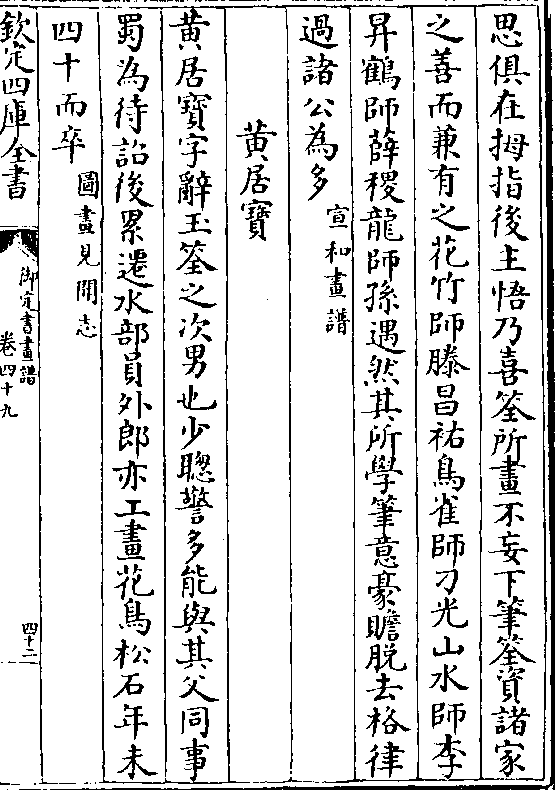 思俱在拇指後主悟乃喜筌所畫不妄下筆筌資諸家
之善而兼有之花竹師滕昌祐鳥雀師刁光山水師李
昇鶴師薛稷龍師孫遇然其所學筆意豪贍脱去格律
過諸公為多宣和畫譜
黄居寳
黄居寳字辭玉筌之次男也少聰警多能與其父同事
蜀為待詔後累遷水部員外郎亦工畫花鳥松石年未
四十而卒圖畫見聞志
欽定四庫全書
御定書畫譜
卷四十九
四十二